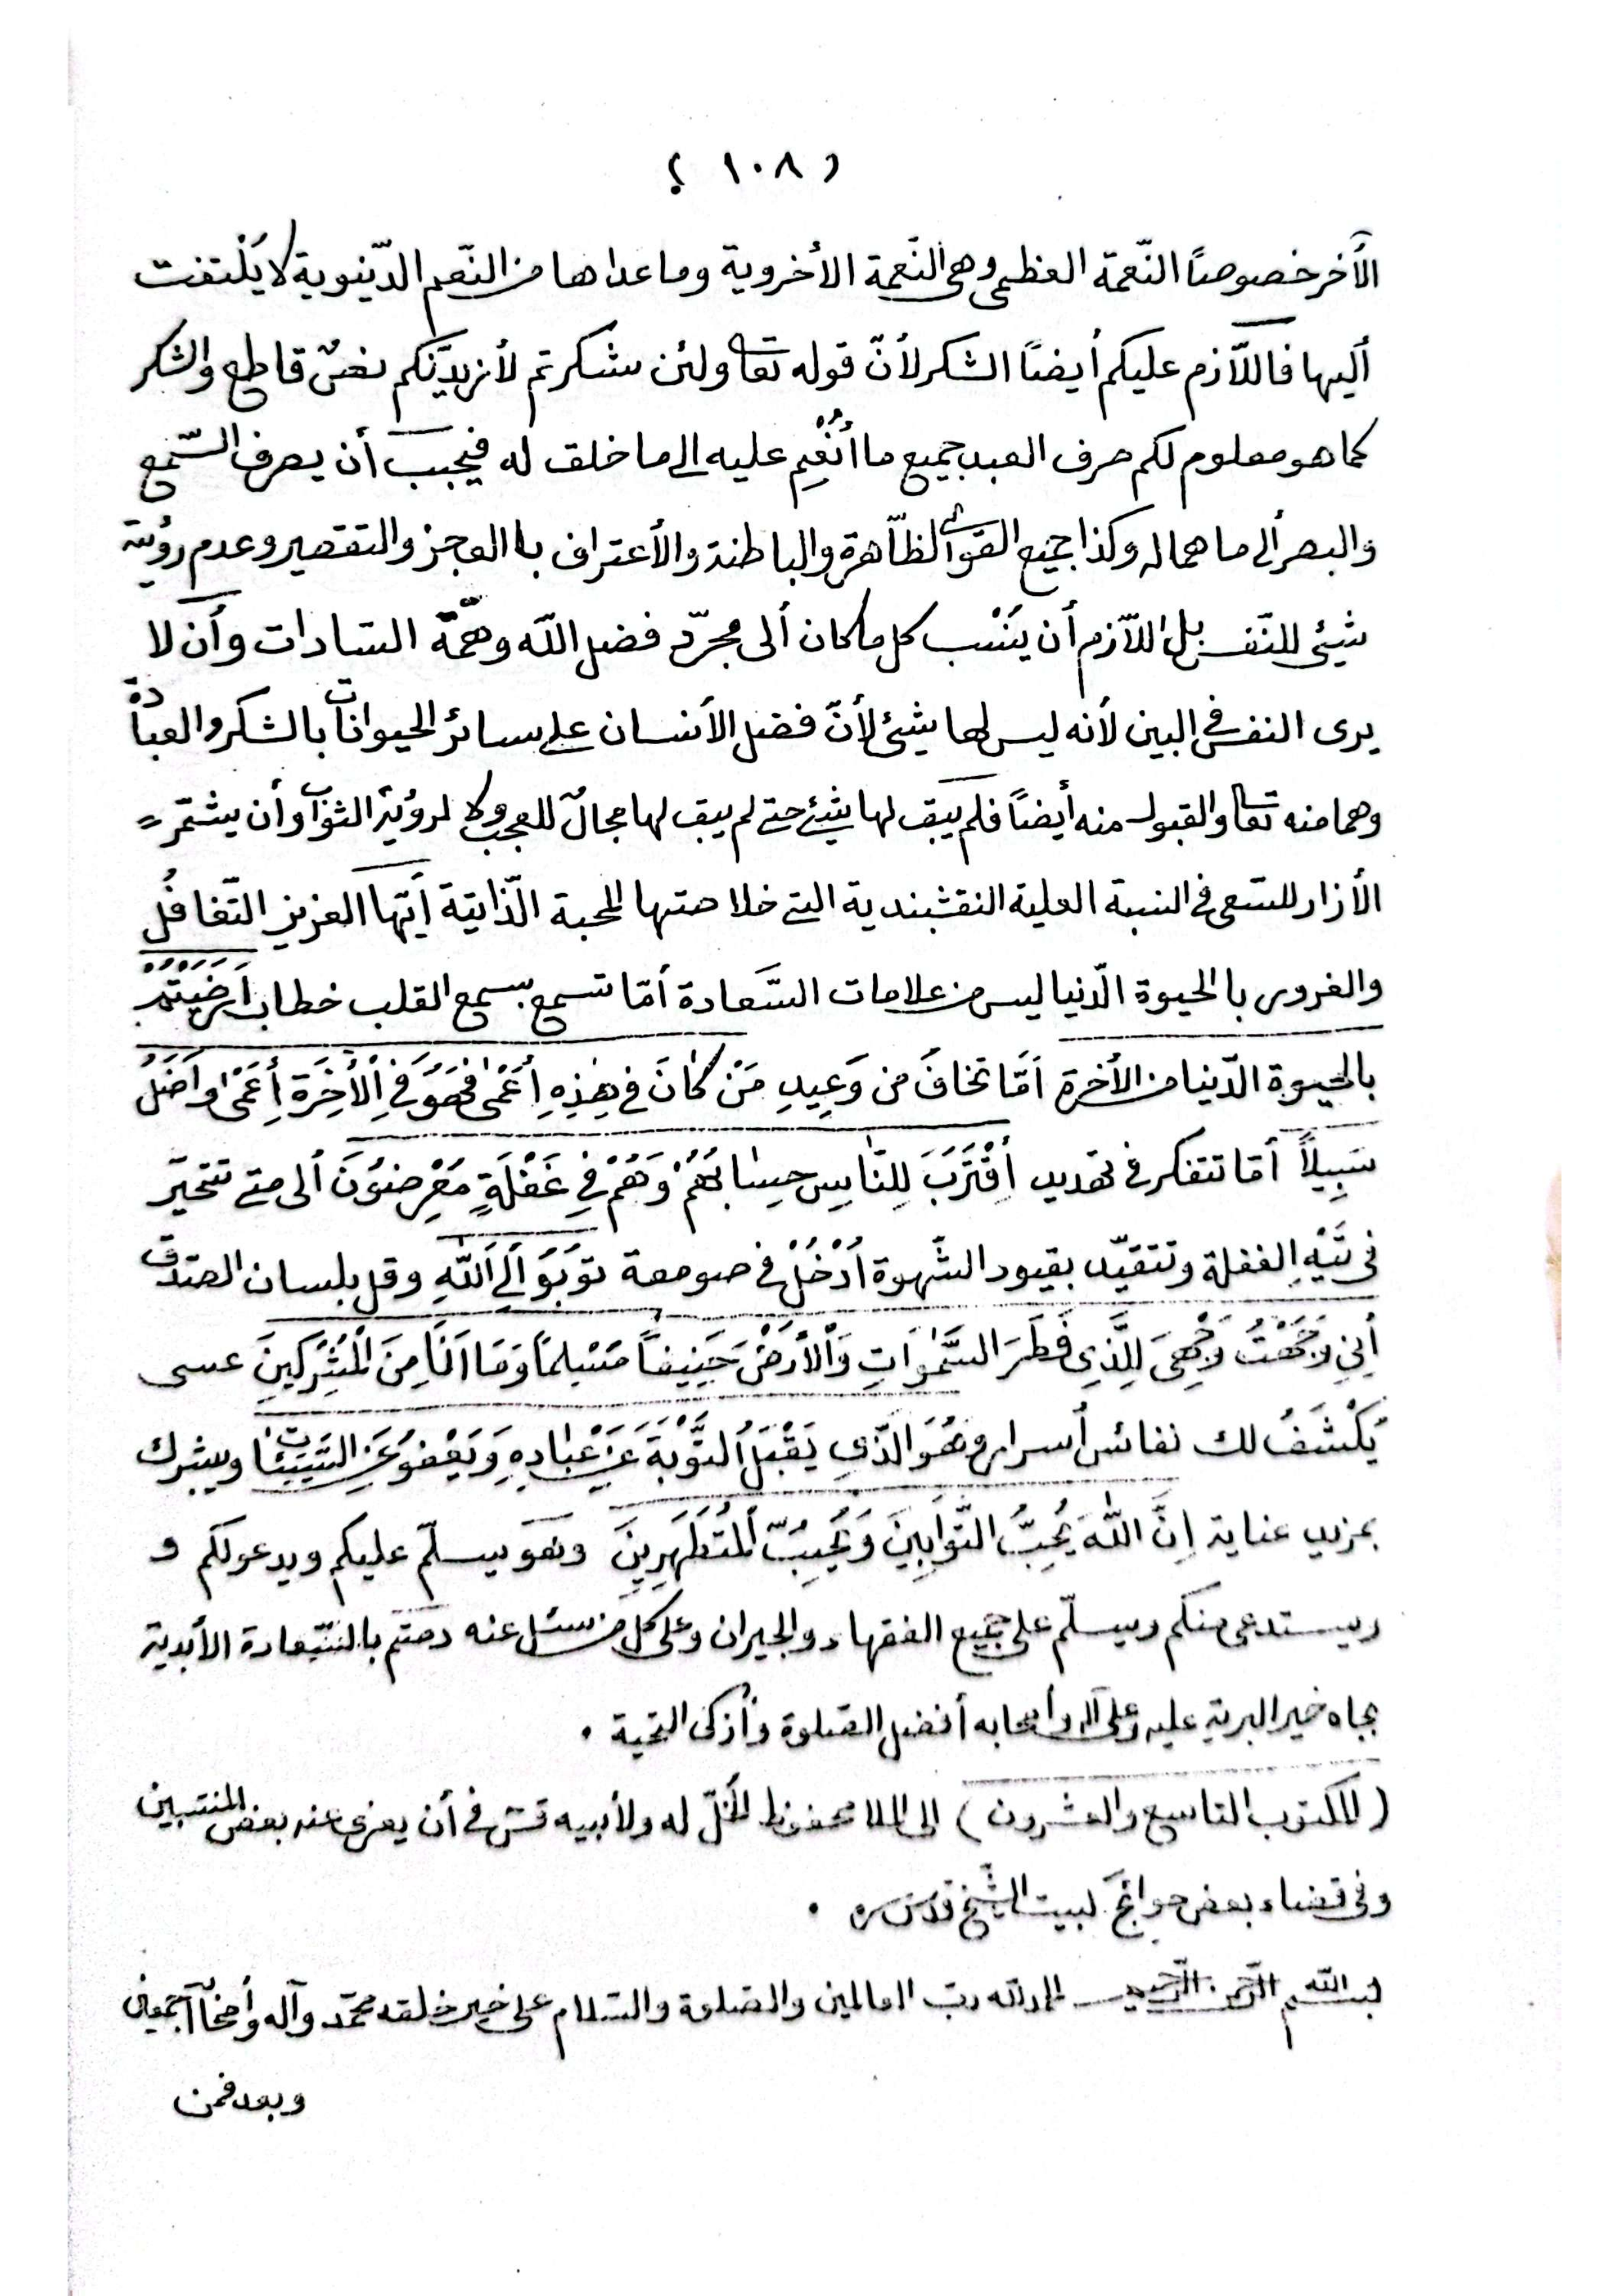 ( ١٠٨ )
الأخر خصوصًا النّعمة العظمى وهى النّعمة الأخروية وما عداها من النّعم الدّينوية لا يَلْتفت
أليها فاللّازم عليكم أيضًا الشكر لأنّ قوله تعا ولئن شكرتم لأزيدنّكم نصٌ قاطع والشكر
كما هو معلوم لكم صرف العبد جميع ما أُنْعِم عليه الى ما خلق له فيجب أن يصرف السّمع
والبصر ألى ما هما له وكذا جميع القوى الظّاهرة والباطنة والأعتراف بالعجز والتقصير وعدم رؤية
شيئ للنّفس بل اللّازم أن ينسب كل ما كان ألى مجرّد فضل اللّه وهمّة السّادات وأن لا
يرى النفس فى البين لأنه ليس لها شيئ لأنّ فضل الأنسان على سائر الحيوانات بالشكر والعبادة
وهما منه تعا والقبول منه أيضًا فلم يبق لها شيئ حتى لم يبق لها مجالٌ للعجب ولا لرؤية الثواب وأن يشمّر
الأزار للسّعى فى النسبة العلية النقشبندية التى خلاصتها المحبة الذّاتية أيّها العزيز التّغافُل
والغرور بالحيوة الدّنيا ليس من علامات السّعادة أمّا تسمع بسمع القلب خطاب أَرَضِيتُمْ
بالحيوة الدّنيا من الأخرة أمّا تخاف من وَعِيدِ مَنْ كَانَ فى هٰذِهِ أَعْمٰى فَهُوَ فِى الْأَخِرَةِ أَعْمٰى وَأَضَلُّ
سَبِيلًا أمّا تتفكر فى تهديد أِقْتَرَبَ لِلنّاسِ حِسٰابُهُمْ وَهُمْ فِى غَفْلَةٍ مُعْرِضُونَ ألى متى تتحيّر
فى تَيْهِ الغفلة وتتقيّد بقيود الشّهوة اُدْخُلْ فى صومعة تُوبُوا اِلَى اللّٰهِ وقل بلسان الصّدق
أِنّى وَجَّهْتُ وَجْهِىَ لِلَّذِى فَطَرَ السَّمٰوَاتِ وَالْأَرْضَ حَنِيفاً مُسْلِماً وَمَا اَنَا مِنَ الْمُشْرِكِينَ عسى
يَكْشفُ لك نفائس أسرار وَهُوَ الَّذِى يَقْبَلُ التَّوْبَةَ عَنْ عِبٰادِهِ وَيَعْفُو عَنِ السَّيِّئاتِ ويبشرك
بمزيد عناية اِنَّ اللّٰهَ يُحِبُّ التَّوَّابِينَ وَيُحِبُّ الْمُتَطَهِّرِينَ وهو يسلّم عليكم ويدعو لكم و
ويستدعى منكم ويسلّم على جميع الفقهاء والجيران وعلى كل من سئل عنه دمتم بالسّعادة الأبدية
بجاه خير البرية عليه وعلى آله وأصحابه أفضل الصّلوة وأزكى التحية .
( المكتوب التاسع والعشرون ) إلى الملا محفوظ المخلّ له ولأبيه فى أن يعزى عنه بعض المنتسبين
وفى قضاء بعض حوائج لبيت الشّيخ قدّس سره .
بسم اللّه الرّحمن الرّحيم الحمد للّه ربّ العالمين والصّلوة والسّلام على خير خلقه محمّد وآله وأصحابه أجمعين
وبعد فمن